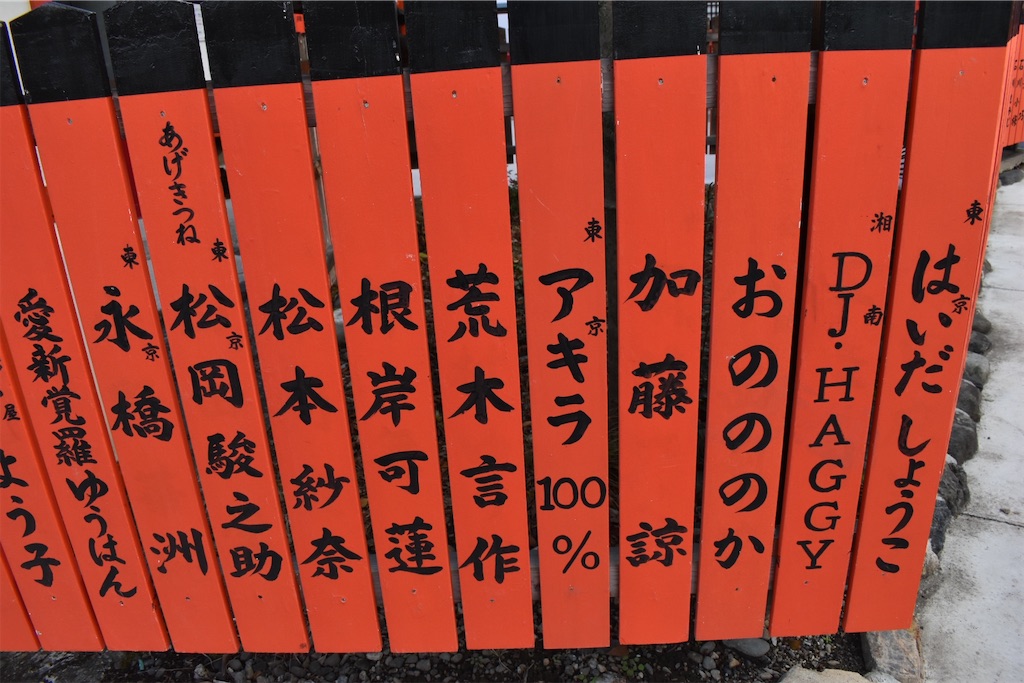 東京 はいだ しょうこ
湘南 DJ.HAGGY
おのののか
加藤 諒
東京 アキラ100%
荒木言作
根岸可蓮
松本紗奈
あげきつね 東京 松岡駿之助
東京 永橋 洲
愛新覚羅ゆうはん
屋 ょう子